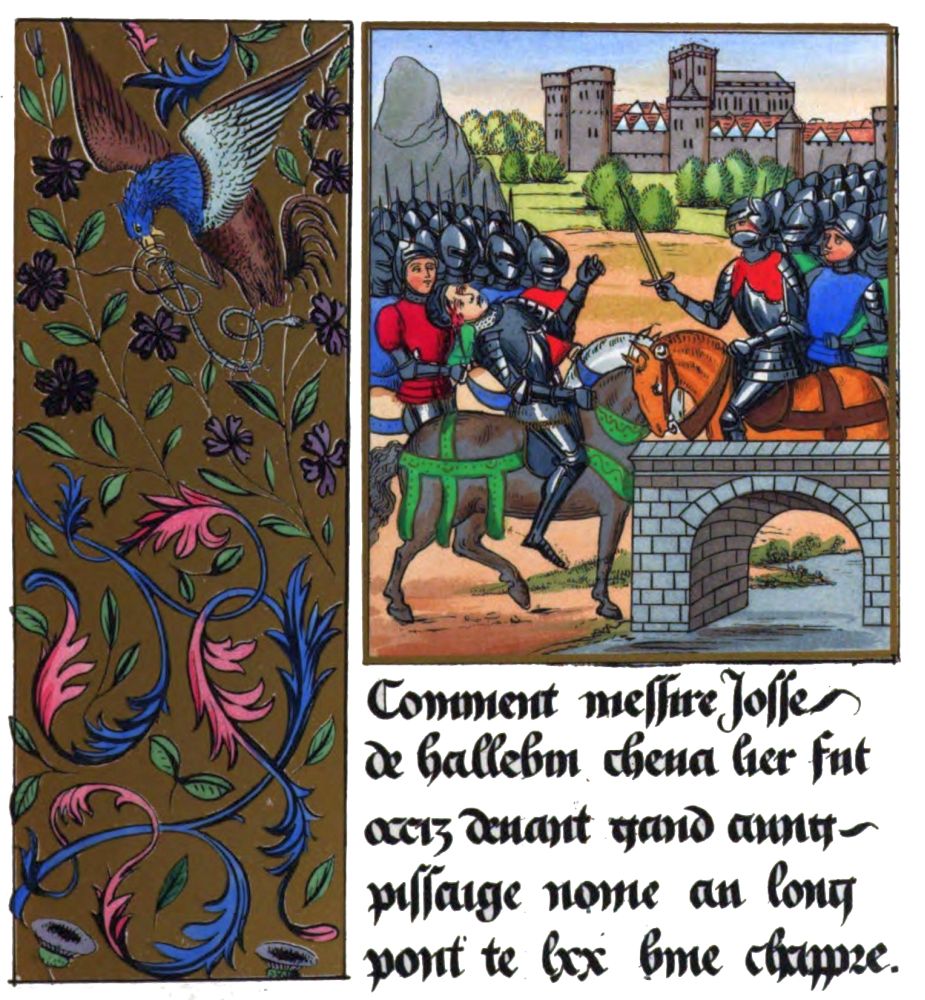 Comment messire Josse
de hallebin cheua lier fut
occiz deuant gand a ung
pissaige nome au long
pont te lxx bme chappre.